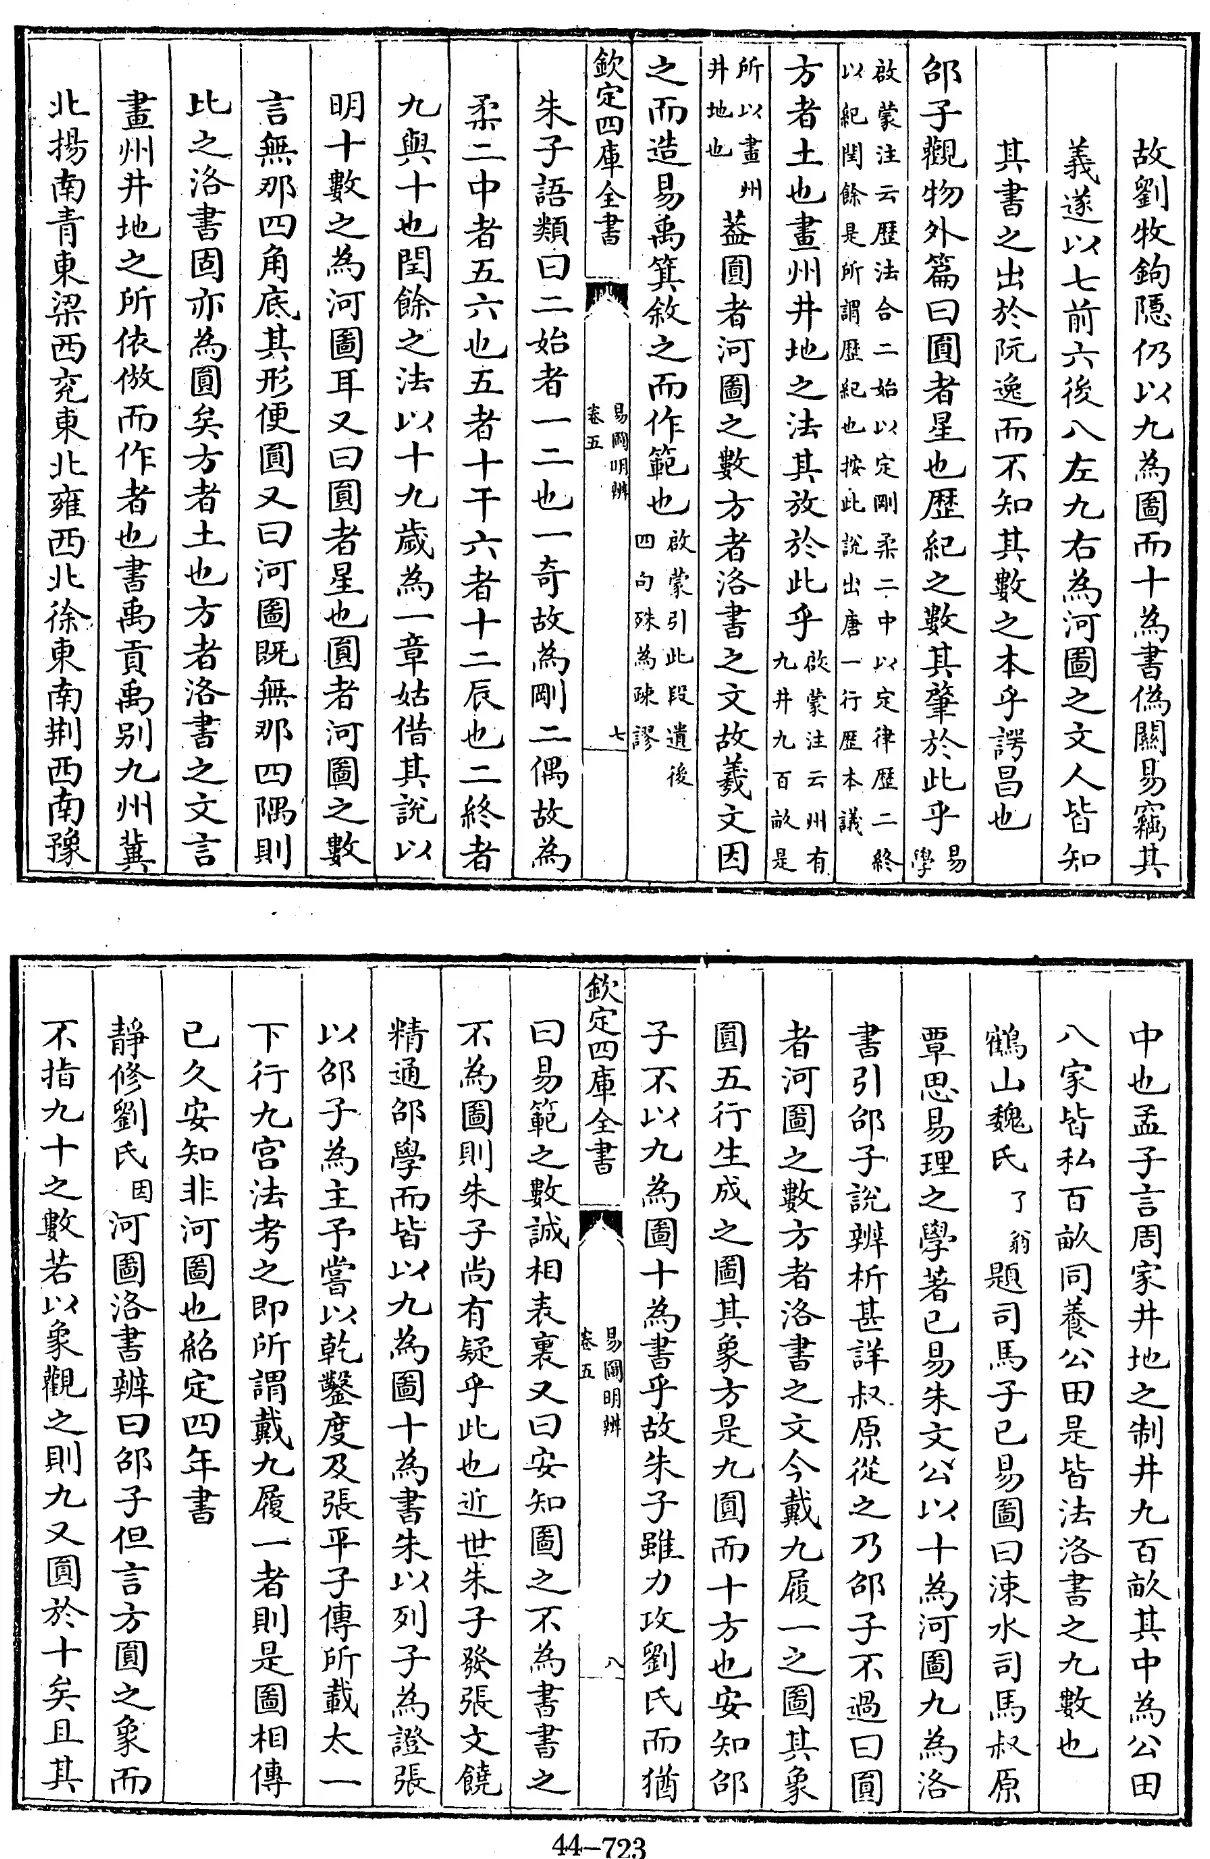 故劉牧鉤隱仍以九為圖而十為書偽關易竊其
義遂以七前六後八左九右為河圖之文人皆知
其書之出於阮逸而不知其數之本乎諤昌也
邵子觀物外篇曰圓者星也歷紀之數其肇於此乎易學
啟蒙注云歷法合二始以定剛柔二中以定律歷二終
以紀閏餘是所謂歷紀也按此說出唐一行歷本議
方者土也畫州井地之法其放於此乎啟蒙注云州有九井九百畝是
所以畫州井地也葢圓者河圖之數方者洛書之文故羲文因
之而造易禹箕敘之而作範也啟蒙引此段遺後四句殊為疎謬
欽定四庫全書
易圖明辨
卷五
七
朱子語類曰二始者一二也一奇故為剛二偶故為
柔二中者五六也五者十干六者十二辰也二終者
九與十也閏餘之法以十九歲為一章姑借其說以
明十數之為河圖耳又曰圓者星也圓者河圖之數
言無那四角底其形便圓又曰河圖既無那四隅則
比之洛書固亦為圓矣方者土也方者洛書之文言
畫州井地之所依倣而作者也書禹貢禹别九州冀
北揚南青東梁西兖東北雍西北徐東南荆西南豫
中也孟子言周家井地之制井九百畝其中為公田
八家皆私百畝同養公田是皆法洛書之九數也
鶴山魏氏了翁題司馬子已易圖曰涑水司馬叔原
覃思易理之學著已易朱文公以十為河圖九為洛
書引邵子說辨析甚詳叔原從之乃邵子不過曰圓
者河圖之數方者洛書之文今戴九履一之圖其象
圓五行生成之圖其象方是九圓而十方也安知邵
子不以九為圖十為書乎故朱子雖力攻劉氏而猶
欽定四庫全書
易圖明辨
卷五
八
曰易範之數誠相表裏又曰安知圖之不為書書之
不為圖則朱子尚有疑乎此也近世朱子發張文饒
精通邵學而皆以九為圖十為書朱以列子為證張
以邵子為主予嘗以乾鑿度及張平子傳所載太一
下行九宫法考之即所謂戴九履一者則是圖相傳
已久安知非河圖也紹定四年書
靜修劉氏因河圖洛書辨曰邵子但言方圓之象而
不指九十之數若以象觀之則九又圓於十矣且其
44-723